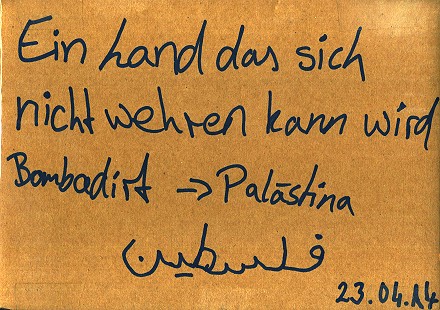 Ein Land das sich
nicht wehren kann wird
Bombadirt → Palästina
فلسطين
23.04.14